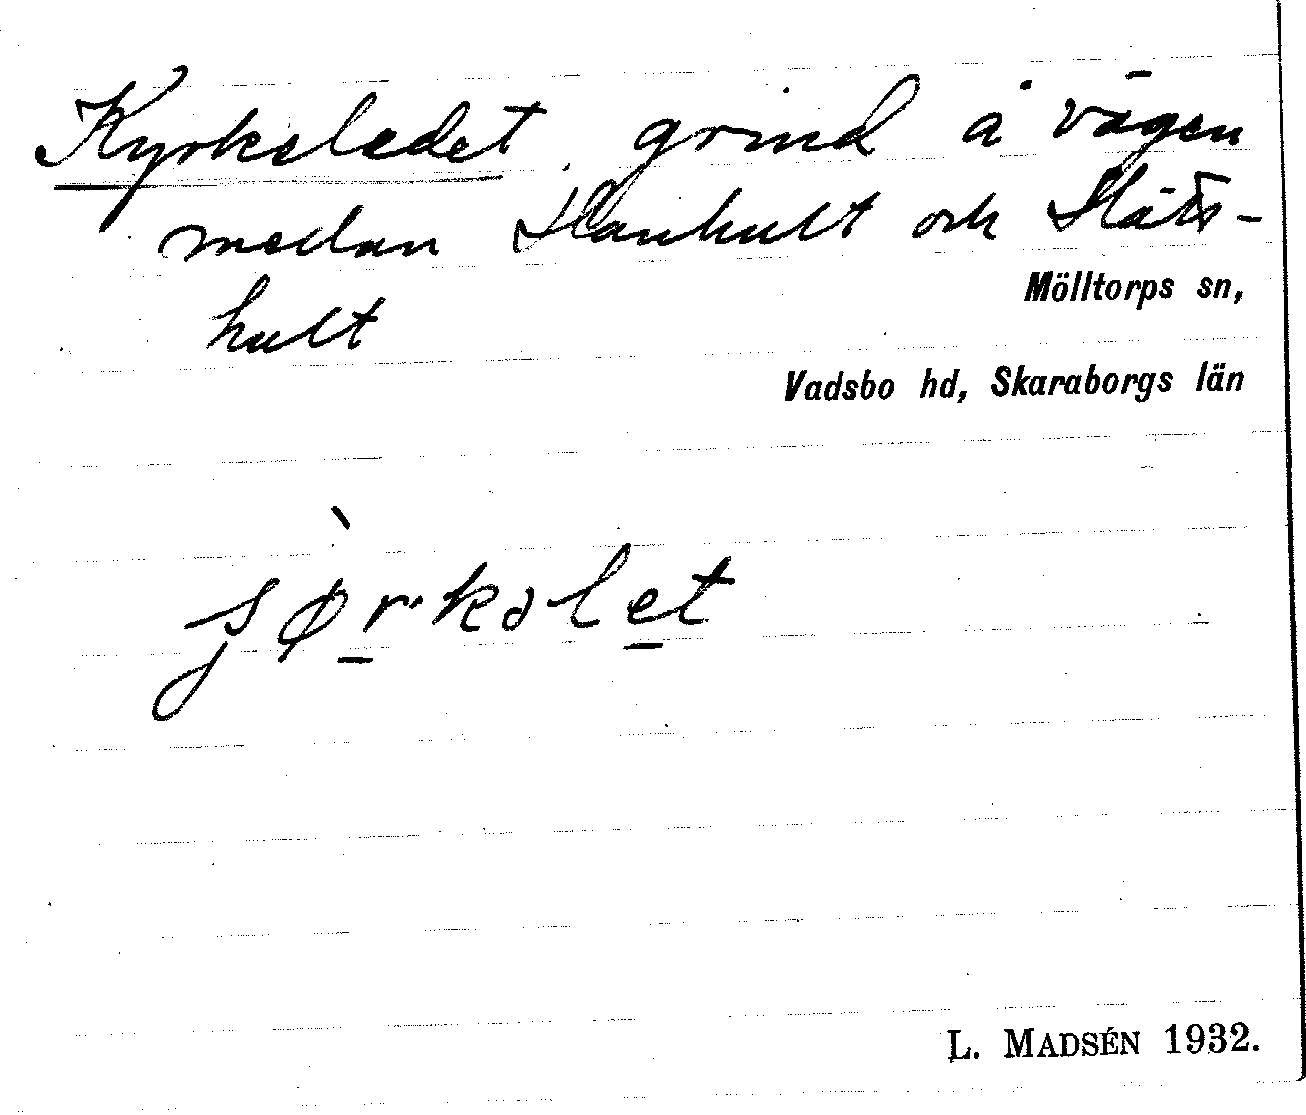 Kyrkeledet, grind å vägen
mellan Stanhult och Släts-
hult
Mölltorps sn,
Vadsbo hd, Skaraborgs län
L. MADSÉN 1932.